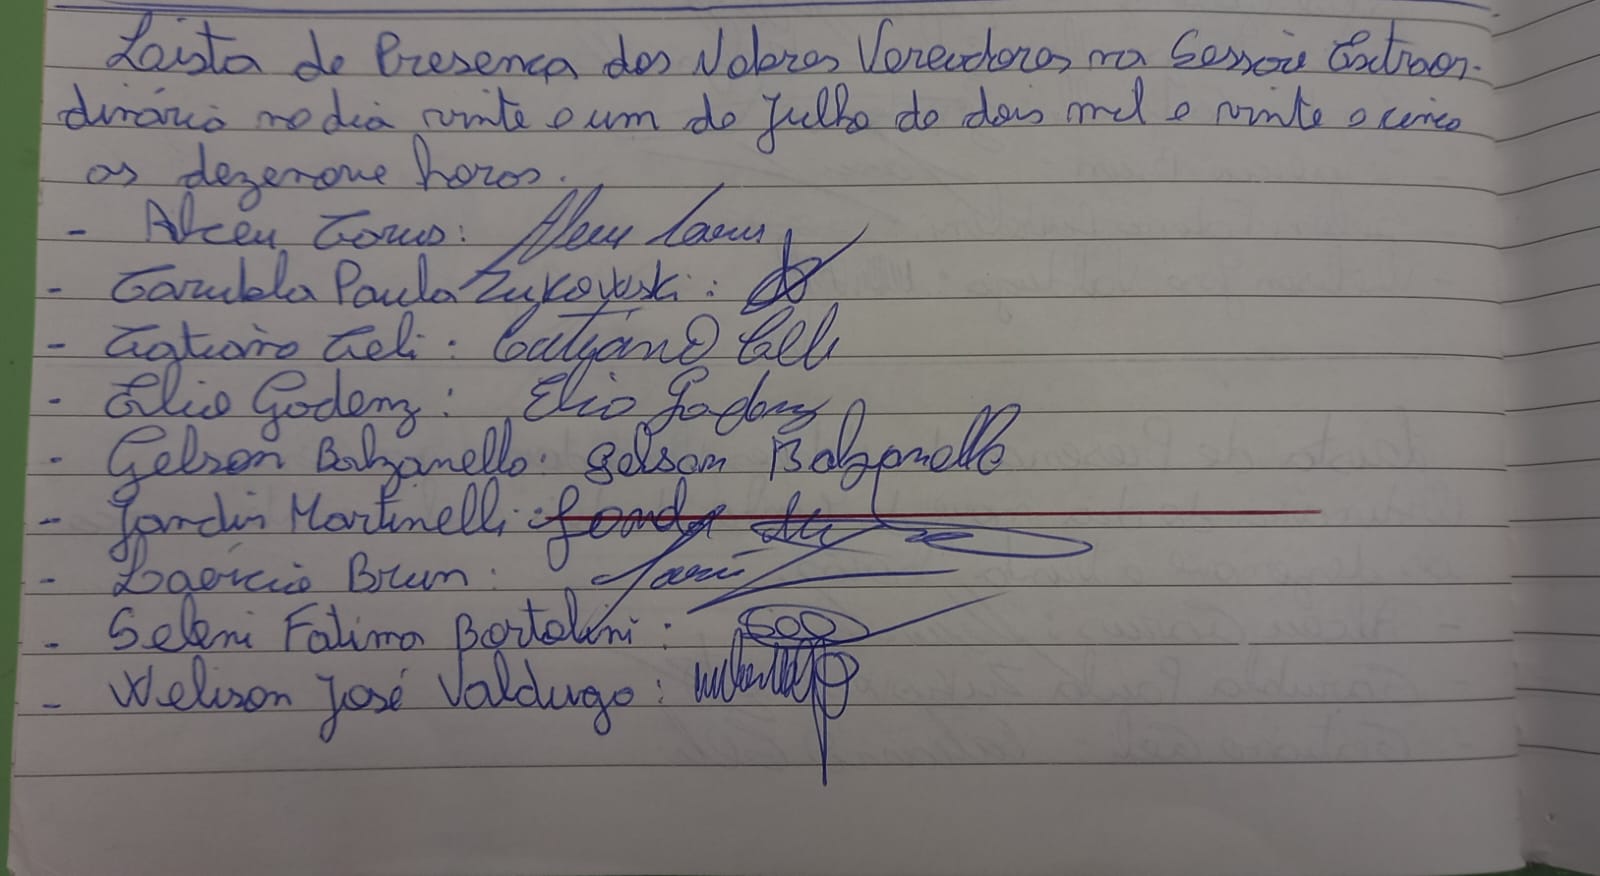 Lista de Presença dos Nobres Vereadores na Sessão Extraor-
dinária no dia vinte e um de Julho de dois mil e vinte e cinco
as dezenove horas.
- Alceu Caus: Alceu Caus
- Carubla Paula Zukowski:
- Catiano Celi: Catiano Celi
- Elio Godenz: Elio Godenz
- Gelson Balzanello: Gelson Balzanello
- Jandir Martinelli:
- Laercio Brun:
- Seleni Fatima Bortolini:
- Welison José Valdugo: